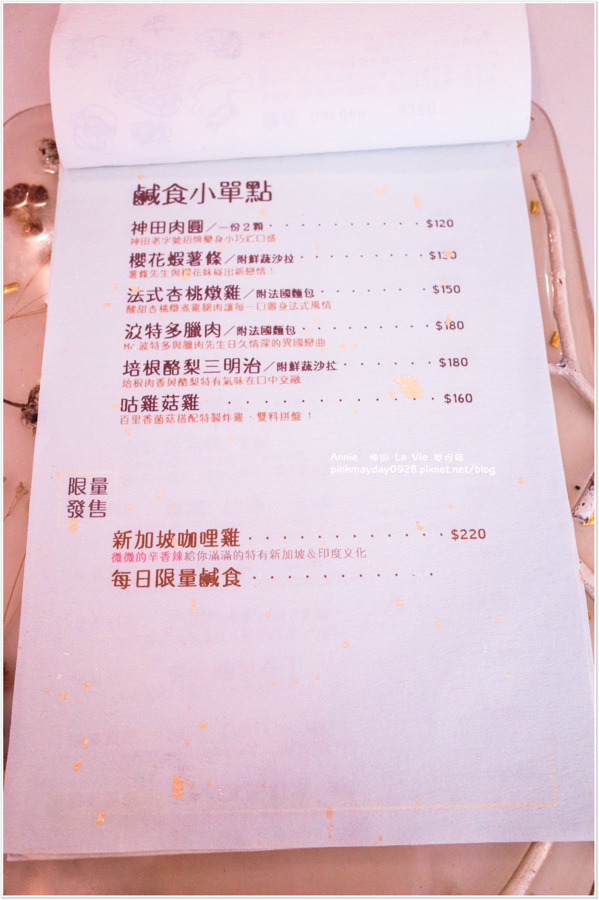 鹹食小單點
神田肉圓／一份2顆 · · · · · · · · · · · · $120
神田老字號招牌變身小巧ㄷ口感
櫻花蝦薯條／附鮮蔬沙拉 · · · · · · · · ·
薯條先生與櫻花妹碰出新戀情！
法式杏桃燉雞／附法國麵包 · · · · · · · $150
酸甜杏桃燉煮雞腿肉讓每一口置身法式風情
波特多臘肉／附法國麵包 · · · · · · · · · $180
Mr.波特多與臘肉先生日久情深的異國戀曲
培根酪梨三明治／附鮮蔬沙拉 · · · · · · $180
培根肉香與酪梨特有氣味在口中交融
咕雞菇雞 · · · · · · · · · · · · $160
百里香菌菇搭配特製炸雞、雙料拼盤！
Annie 神田 La Vie
pinkmayday0928.pixnet.net/blog
限量
發售
新加坡咖哩雞 · · · · · · · · · · · · · $220
微微的辛香辣給你滿滿的特有新加坡&印度文化
每日限量鹹食 · · · · · · · · · · · ·